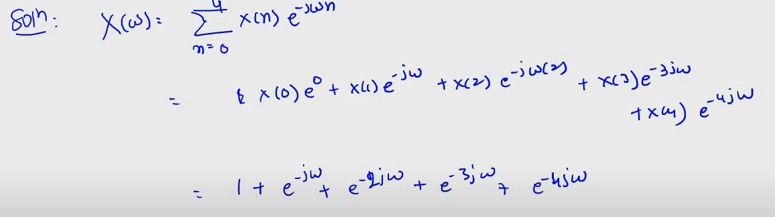 Soln: X(ω) = 4 Σ n=0 x(n) e^-jωn
= x(0) e^0 + x(1) e^-jω + x(2) e^-jω(2) + x(3) e^-3jω
+ x(4) e^-4jω
= 1 + e^-jω + e^-2jω + e^-3jω + e^-4jω